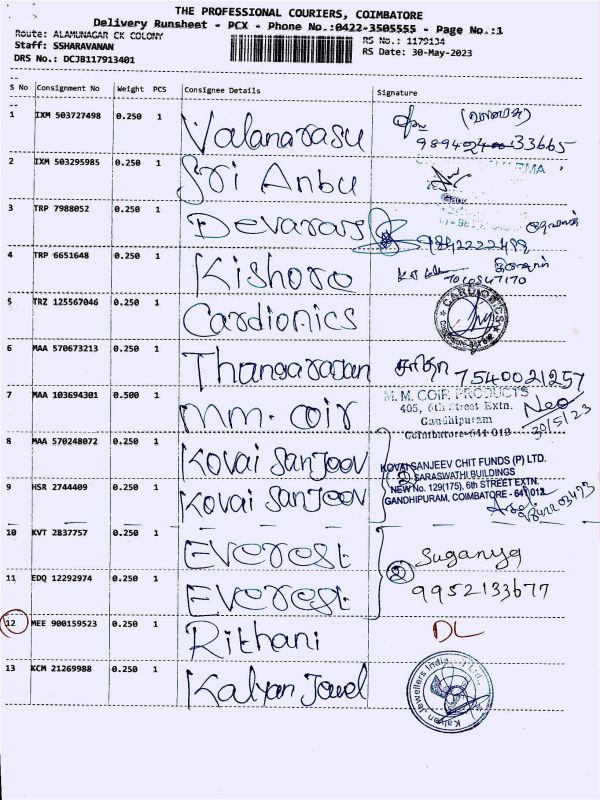 THE PROFESSIONAL COURIERS, COIMBATORE
Delivery Runsheet - PCX - Phone No.:0422-3505555 - Page No.:1
Route: ALAMUNAGAR CK COLONY RS No.: 1179134
Staff: SSHARAVANAN RS Date: 30-May-2023
DRS No.: DCJB117913401
S No Consignment No Weight PCS Consignee Details Signature
1 IXM 503727498 0.250 1 Valanarasu
2 IXM 503295985 0.250 1 Sri Anbu
3 TRP 7988052 0.250 1 Devaraj 9842222488
4 TRP 6651648 0.250 1 Kishore 7010547170
5 TRZ 125567046 0.250 1 Cardionics CARDIONICS
6 MAA 570673213 0.250 1 Thangarajan சுதா 7540021257
7 MAA 103694301 0.500 1 MM. Coir M. M. COIR PRODUCTS
405, 6th Street Extn. Neo
Gandhipuram 30/5/23
Coimbatore-641 012
8 MAA 570248072 0.250 1 Kovai Sanjeev KOVAI SANJEEV CHIT FUNDS (P) LTD.
2 SARASWATHI BUILDINGS
NEW No. 129(175), 6th STREET EXTN.
9 HSR 2744409 0.250 1 Kovai Sanjeev GANDHIPURAM, COIMBATORE - 641 012
10 KVT 2837757 0.250 1 Everest Suganya
11 EDQ 12292974 0.250 1 Everest 2 9952133677
12 MEE 900159523 0.250 1 Rithani DL
13 KCM 21269988 0.250 1 Kalyan Jewel Kalyan Jewellers India Ltd.